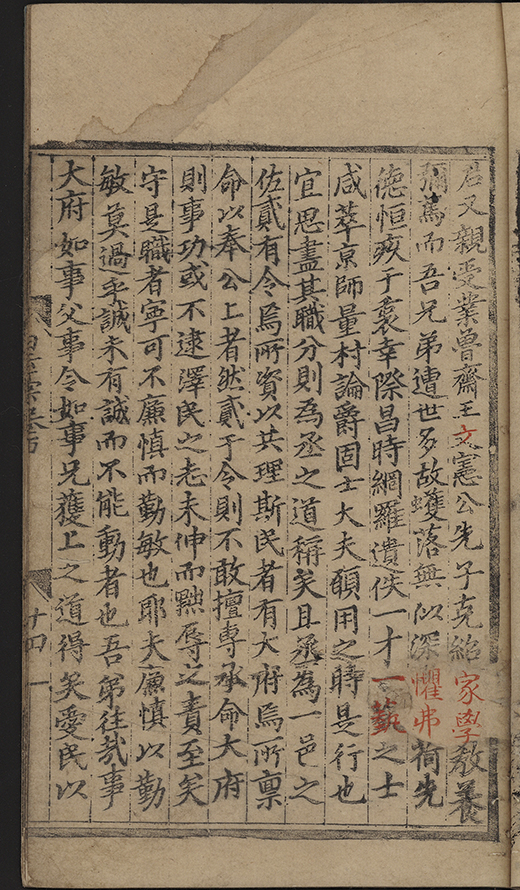 君又親受業魯齋王文憲公先子克紹家學教養
彌篤而吾兄弟遭世多故蠖落無似深懼弗荷先
德恒疚于衷幸際昌時網羅遺佚一才一藝之士
咸萃京師量材論爵固士大夫願用之時是行也
宜思盡其職分則為丞之道稱矣且丞為一邑之
佐貳有令焉所資以共理斯民者有大府焉所稟
命以奉公上者然貳于令則不敢擅專承命大府
則事功或不逮澤民之志未伸而黜辱之責至矣
守是職者寧可不廉慎而勤敏也耶夫廉慎以勤
敏莫過乎誠未有誠而不能動者也吾弟往哉事
大府如事父事令如事兄獲上之道得矣愛民以
十四